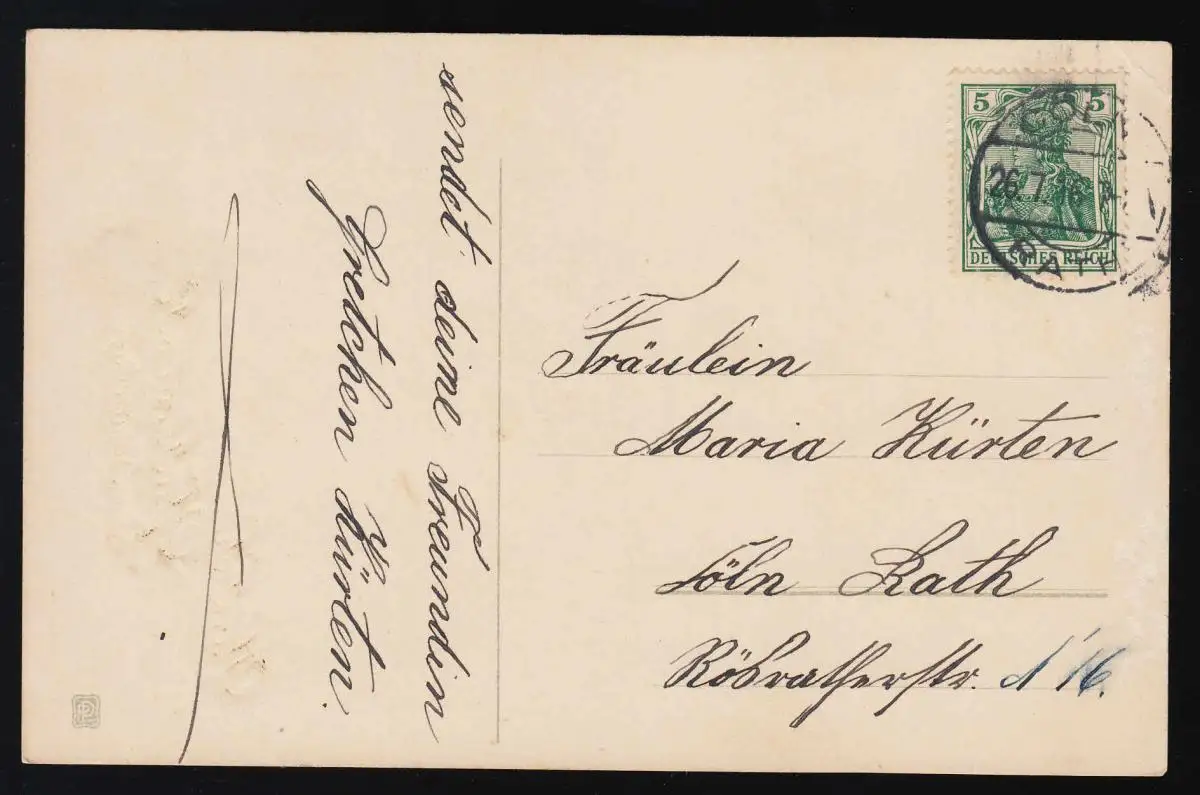 sendet deine Freundin
Gretchen Kürten.
5 5
CÖLN
26.7.16
DEUTSCHES REICH
RATH
Fräulein
Maria Kürten
Cöln Rath
Rösratherstr. 116.